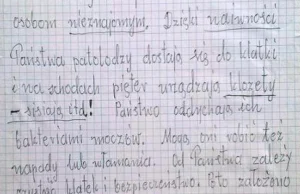 osobom nieznajomym. Dzięki naiwności
Państwa patolodzy dostają się do klatki
i na schodach pięter urządzają klozety
– sisiają itd.! Państwo oddychają ich
bakteriami moczów. Mogą oni robić też
napady lub włamania. Od Państwa zależy
klatek i bezpieczeństwo. Po to założono